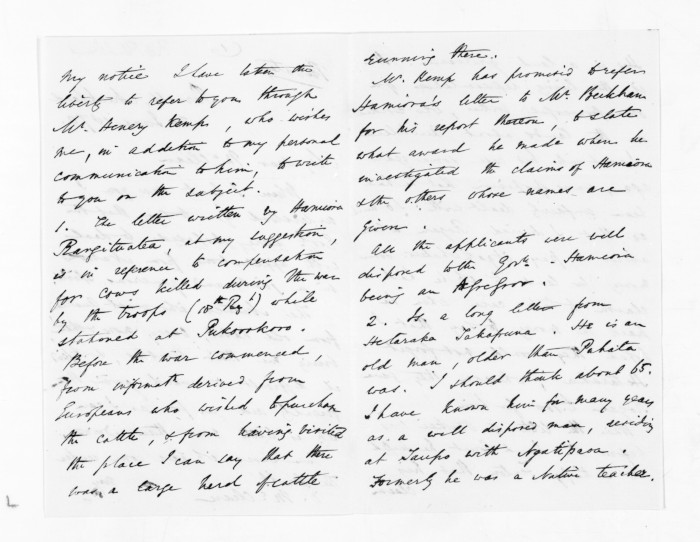 my notice I have taken the
liberty to refer to you through
Mr. Henry Kemp, who wishes
me, in addition to my personal
communication to him, to write
to you on the subject.
1. The letter written by Hamiora
Rangituatea, at my suggestion,
is in reference to compensation
for cows killed during the war
by the troops (18th Regt) while
stationed at Pukorokoro.
Before the war commenced,
from informatn derived from
Europeans who wished to purchase
the cattle, & from having visited
the place I can say that there
was a large herd of cattle
running there.
Mr. Kemp has promised to refer
Hamiora's letter to Mr. Beckham
for his report thereon, to state
what award he made when he
investigated the claims of Hamiora
& the others whose names are
given.
All the applicants were well
disposed to the Govt. - Hamiora
being an Assessor.
2. Is a long letter from
Hetaraka Takapuna. He is an
old man, older than Pahata
was. I should think about 65.
I have known him for many years
as a well disposed man, residing
at Taupo with Ngatipaoa.
Formerly he was a Native teacher.